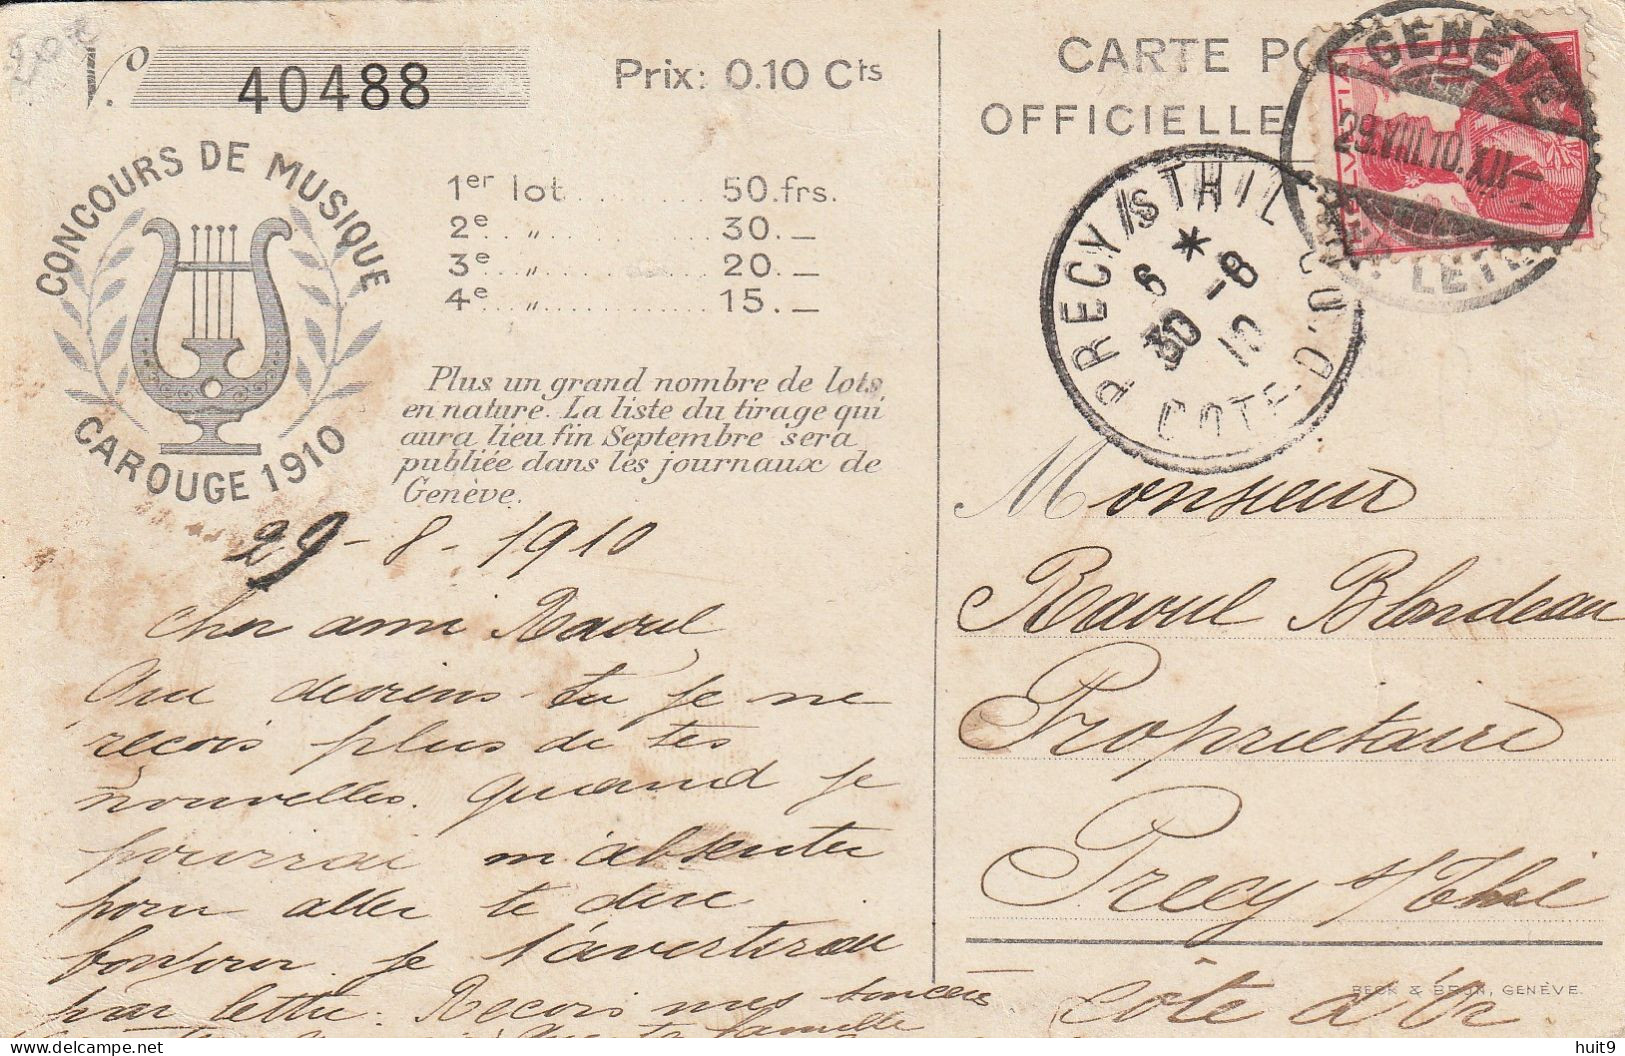 No 40488
Prix: 0.10 Cts
CONCOURS DE MUSIQUE
CAROUGE 1910
1er lot ........... 50. frs.
2e „ ........... 30. —
3e „ ........... 20. —
4e „ ........... 15. —
Plus un grand nombre de lots
en nature. La liste du tirage qui
aura lieu fin Septembre sera
publiée dans les journaux de
Genève.
29-8-1910
Cher ami Raoul
Que deviens-tu je ne
reçois plus de tes
nouvelles. quand je
pourrai m'absenter
pour aller te dire
bonjour je t'avertirai
par lettre. Recois mes sincère
famille
CARTE PO
OFFICIELLE
GENÈVE
29.VIII.10.XII—
LETT
HELVETIA
PRECY S/S THIL
* 6
30 -8
10
COTE-D'OR
Monsieur
Raoul Blondeau
Propriétaire
Precy s/Thil
Côte d'Or
BECK & BRUN, GENÈVE.
delcampe.net
huit9